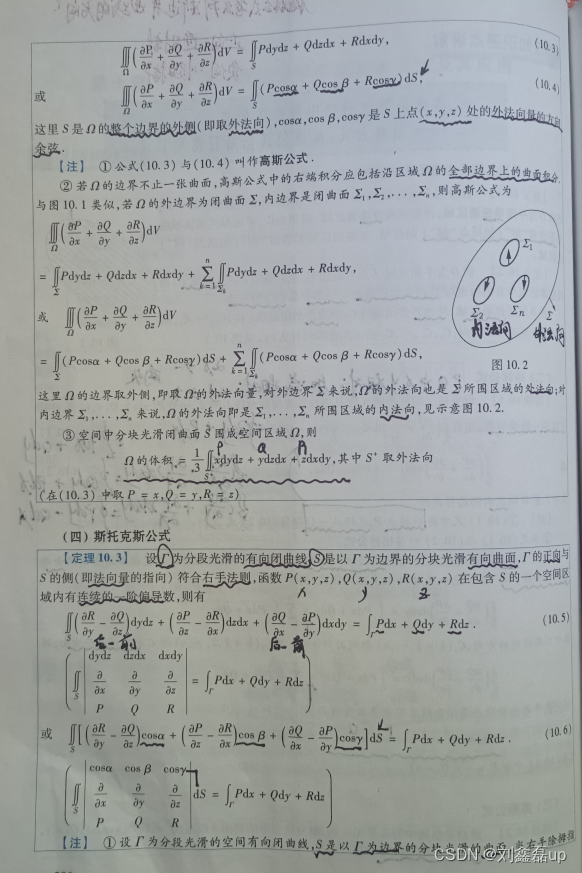 ∭_Ω(∂P/∂x + ∂Q/∂y + ∂R/∂z)dV = ∬_S Pdydz + Qdzdx + Rdxdy, (10.3)
或 ∭_Ω(∂P/∂x + ∂Q/∂y + ∂R/∂z)dV = ∬_S (Pcosα + Qcos β + Rcosγ)dS, (10.4)
这里 S 是 Ω 的整个边界的外侧(即取外法向),cosα,cos β,cosγ 是 S 上点(x,y,z) 处的外法向量的方向
余弦.
【注】 ①公式(10.3) 与(10.4) 叫作高斯公式.
② 若 Ω 的边界不止一张曲面,高斯公式中的右端积分应包括沿区域 Ω 的全部边界上的曲面积分.
与图 10.1 类似,若 Ω 的外边界为闭曲面 Σ,内边界是闭曲面 Σ₁,Σ₂,...,Σₙ,则高斯公式为
∭_Ω(∂P/∂x + ∂Q/∂y + ∂R/∂z)dV
= ∬_Σ Pdydz + Qdzdx + Rdxdy + ∑_{k=1}^{n} ∬_{Σₖ} Pdydz + Qdzdx + Rdxdy,
或 ∭_Ω(∂P/∂x + ∂Q/∂y + ∂R/∂z)dV
= ∬_Σ (Pcosα + Qcos β + Rcosγ)dS + ∑_{k=1}^{n} ∬_{Σₖ} (Pcosα + Qcos β + Rcosγ)dS,
Σ₁
Σ₂ Σₙ Σ
内法向 外法向
图 10.2
这里 Ω 的边界取外侧,即取 Ω 的外法向量,对外边界 Σ 来说,Ω 的外法向也是 Σ 所围区域的外法向;对
内边界 Σ₁,...,Σₙ 来说,Ω 的外法向即是 Σ₁,...,Σₙ 所围区域的内法向,见示意图 10.2.
③ 空间中分块光滑闭曲面 S 围成空间区域 Ω,则
P Q R
Ω 的体积 = 1/3 ∬_{S⁺} xdydz + ydzdx + zdxdy,其中 S⁺ 取外法向
(在(10.3) 中取 P = x,Q = y,R = z)
(四) 斯托克斯公式
【定理 10.3】 设 Γ 为分段光滑的有向闭曲线,S 是以 Γ 为边界的分块光滑有向曲面,Γ 的正向与
S 的侧(即法向量的指向) 符合右手法则,函数 P(x,y,z),Q(x,y,z),R(x,y,z) 在包含 S 的一个空间区
域内有连续的一阶偏导数,则有
x y z
∬_S (∂R/∂y − ∂Q/∂z)dydz + (∂P/∂z − ∂R/∂x)dzdx + (∂Q/∂x − ∂P/∂y)dxdy = ∫_Γ Pdx + Qdy + Rdz. (10.5)
后-前 后-前
(∬_S |dydz dzdx dxdy; ∂/∂x ∂/∂y ∂/∂z; P Q R| = ∫_Γ Pdx + Qdy + Rdz)
或 ∬_S [(∂R/∂y − ∂Q/∂z)cosα + (∂P/∂z − ∂R/∂x)cos β + (∂Q/∂x − ∂P/∂y)cosγ]dS = ∫_Γ Pdx + Qdy + Rdz. (10.6)
(∬_S |cosα cos β cosγ; ∂/∂x ∂/∂y ∂/∂z; P Q R| dS = ∫_Γ Pdx + Qdy + Rdz)
【注】 ① 设 Γ 为分段光滑的空间有向闭曲线,S 是以 Γ 为边界的分块光滑的曲面,当右手除拇指
CSDN @刘鑫磊up